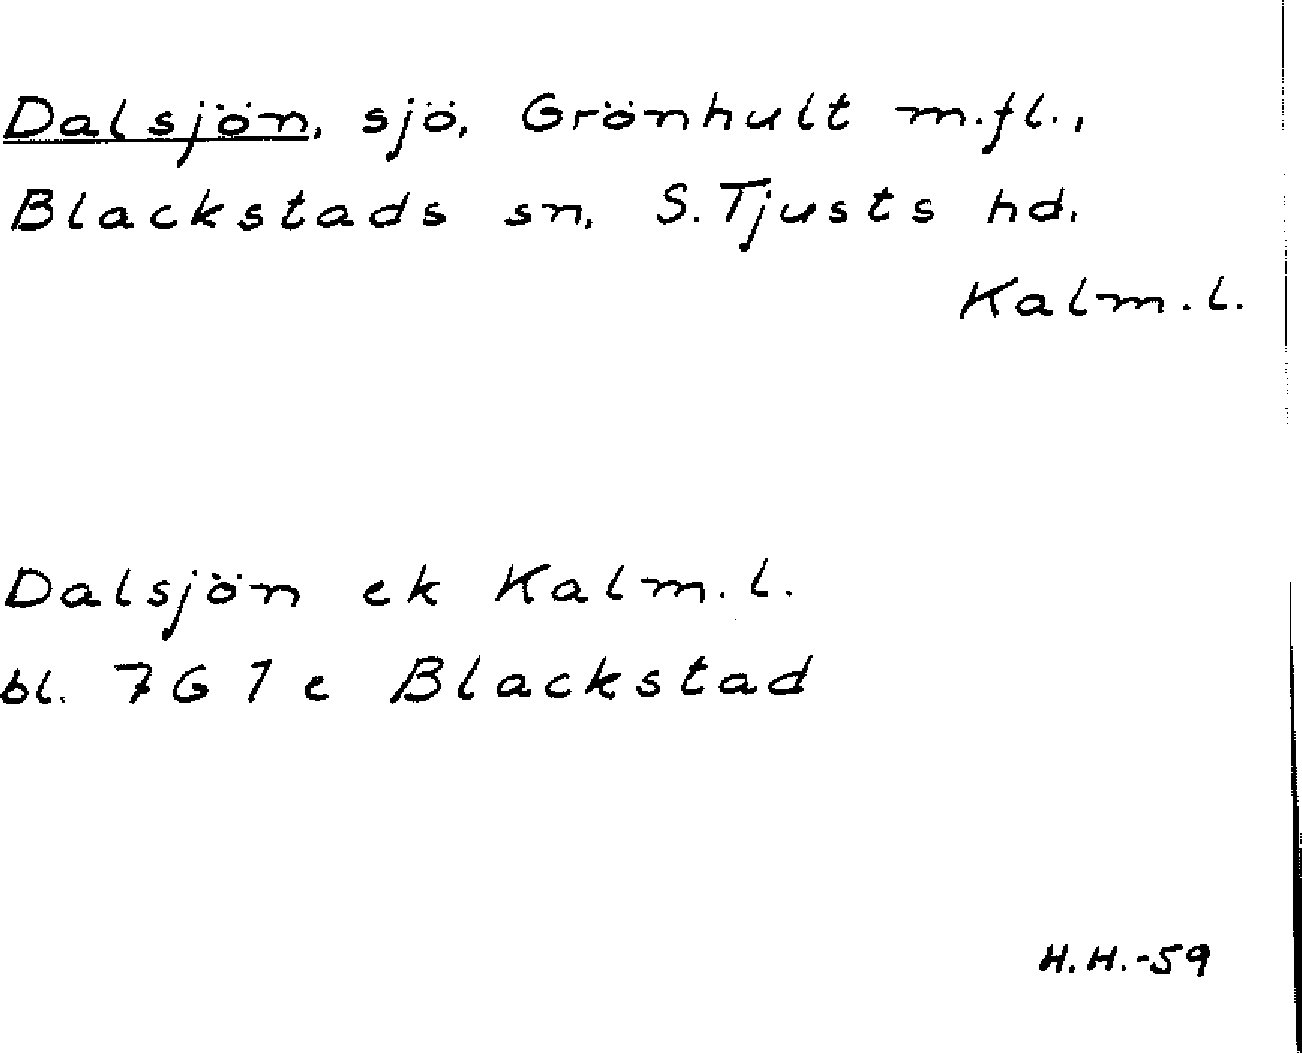 Dalsjön, sjö, Grönhult m.fl.,
Blackstads sn, S. Tjusts hd.
Kalm.l.
Dalsjön ek Kalm.l.
bl. 7G 1 e Blackstad
H.H.-59